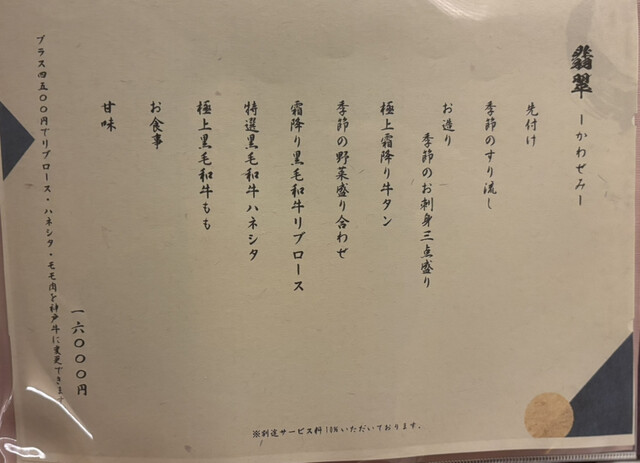 翡翠 ーかわせみー
先付け
季節のすり流し
お造り
季節のお刺身三点盛り
極上霜降り牛タン
季節の野菜盛り合わせ
霜降り黒毛和牛リブロース
特選黒毛和牛ハネシタ
極上黒毛和牛もも
お食事
甘味
一六〇〇〇円
プラス四五〇〇円でリブロース・ハネシタ・モモ肉を神戸牛に変更できます
※別途サービス料10%いただいております。